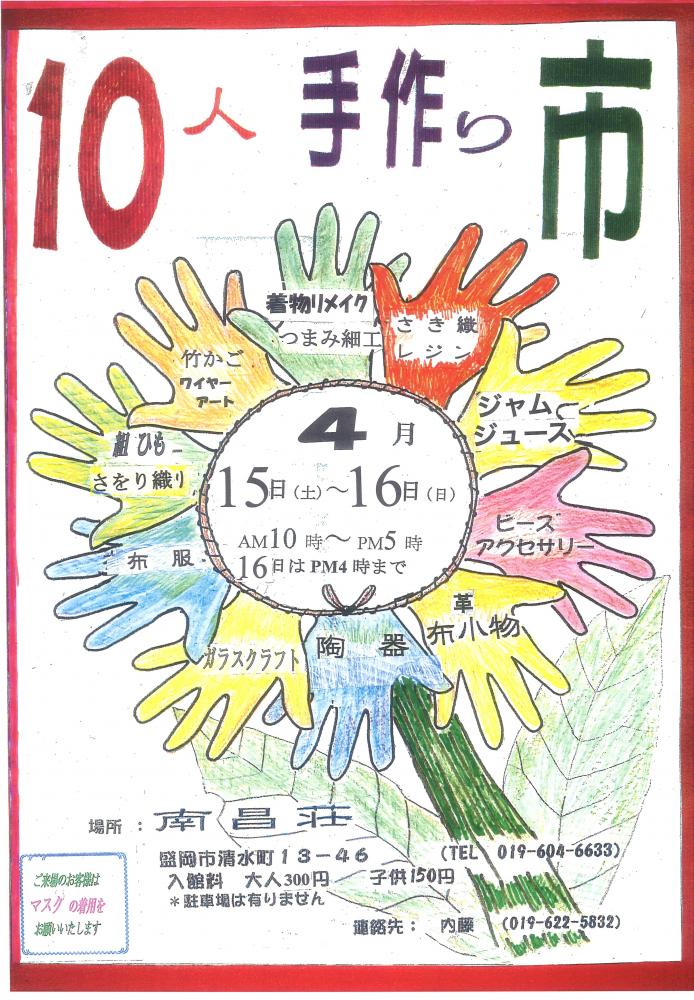 10人 手作り 市
着物リメイク
つまみ細工
さき織
レジン
竹かご
ワイヤー
アート
ジャム
ジュース
組ひも
さをり織り
ビーズ
アクセサリー
布服
革
布小物
ガラスクラフト
陶器
4月
15日(土)～16日(日)
AM10時～PM5時
16日はPM4時まで
場所：南昌荘
盛岡市清水町13－46 (TEL 019-604-6633)
入館料 大人300円 子供150円
＊駐車場は有りません
連絡先： 内藤 (019-622-5832)
ご来場のお客様は
マスクの着用を
お願いいたします